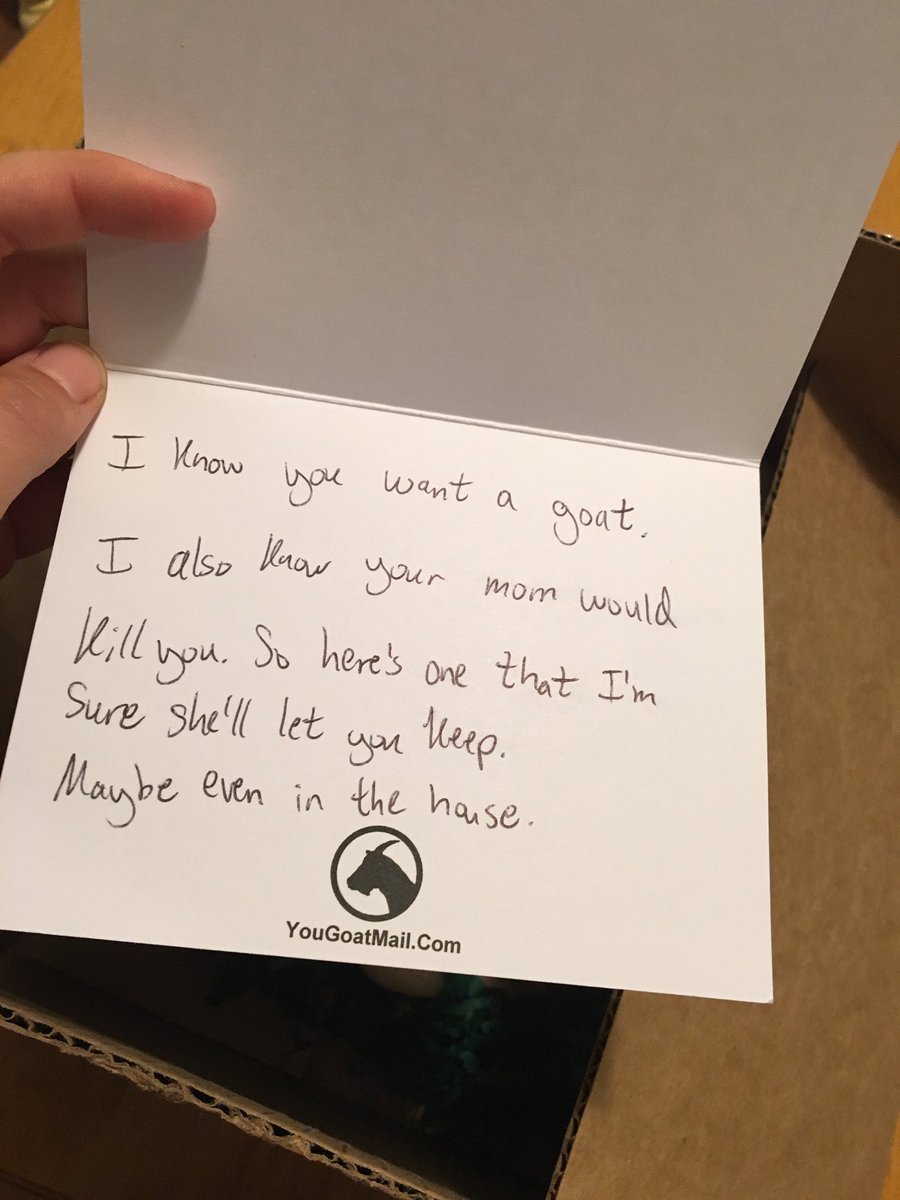 I know you want a goat.
I also know your mom would
kill you. So here's one that I'm
Sure she'll let you keep.
Maybe even in the house.
YouGoatMail.Com